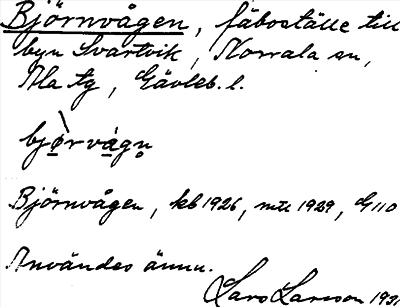 Björnvågen, fäboställe till
byn Svartvik, Norrala sn,
Ala tg, Gävleb. l.
bjòrvágn̥
Björnvågen, kb 1926, mtl 1929, G 110
Användes ännu.
Lars Larsson 1931